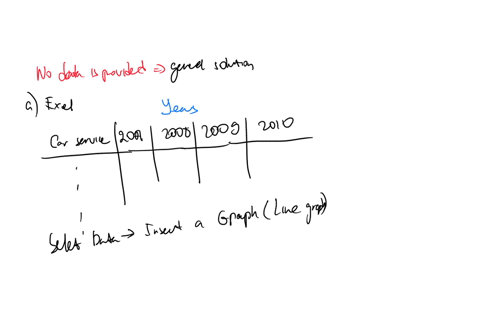 No data is provided => general solution
a) Exel
Years
Car service | 2001 | 2008 | 2009 | 2010
Select Data → Insert a Graph (Line graph)